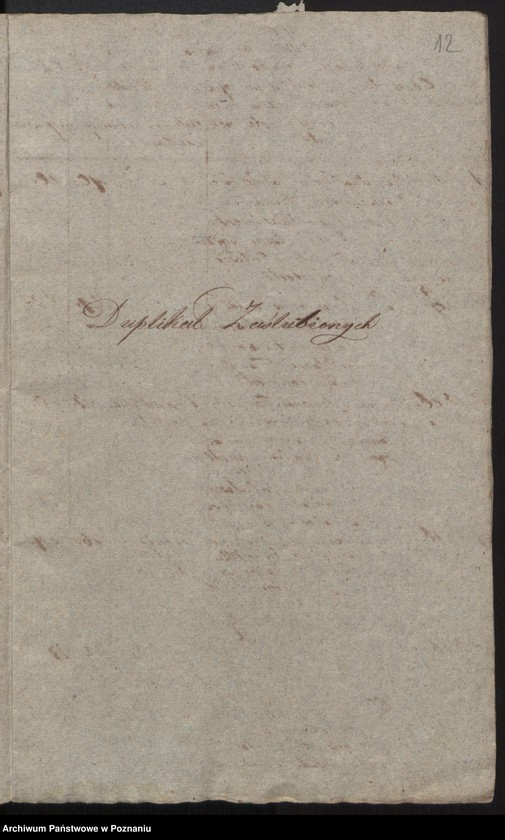 12
Duplikat Zaślubionych
Archiwum Państwowe w Poznaniu